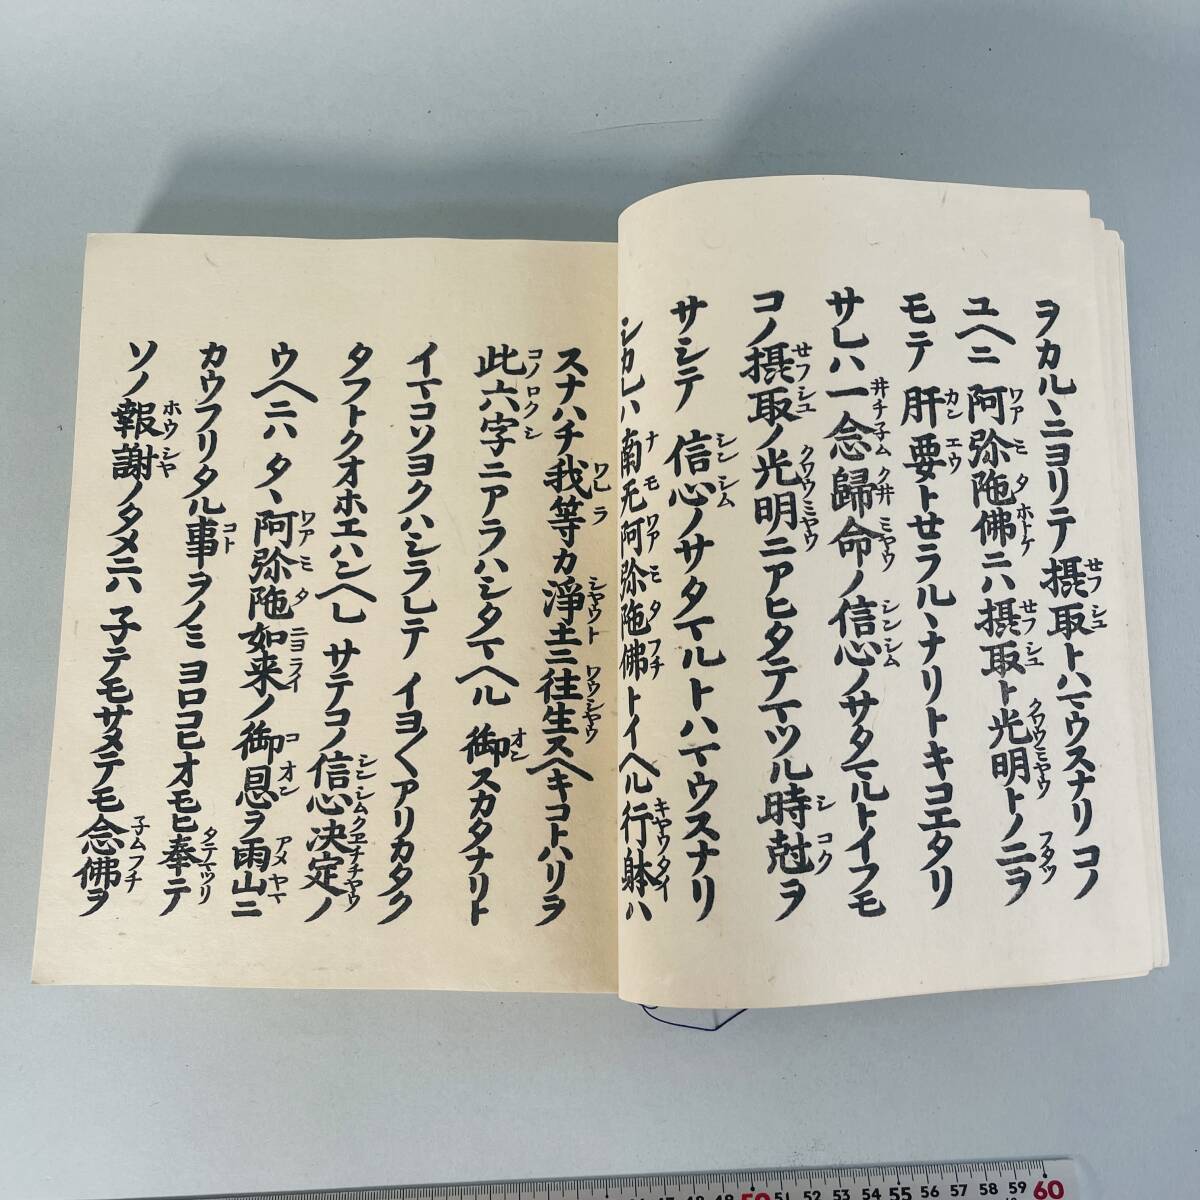 ヲカルヽニヨリテ摂取トハマウスナリコノ
ユヘニ阿弥陁佛ニハ摂取ト光明トノ二ヲ
モテ肝要トセラルヽナリトキコエタリ
サレハ一念歸命ノ信心ノサタマルトイフモ
コノ摂取ノ光明ニアヒタテマツル時尅ヲ
サシテ信心ノサタマルトハマウスナリ
シカレハ南无阿弥陁佛トイヘル行躰ハ
スナハチ我等カ淨土ニ往生スヘキコトハリヲ
此六字ニアラハシタマヘル御スカタナリト
イマコソヨクハシラレテイヨ〱アリカタク
タフトクオホエハンヘレサテコノ信心決定ノ
ウヘニハタヽ阿弥陁如来ノ御恩ヲ雨山ニ
カウフリタル事ヲノミヨロコヒオモヒ奉テ
ソノ報謝ノタメニハ子テモサメテモ念佛ヲ
51 52 53 54 55 56 57 58 59 60